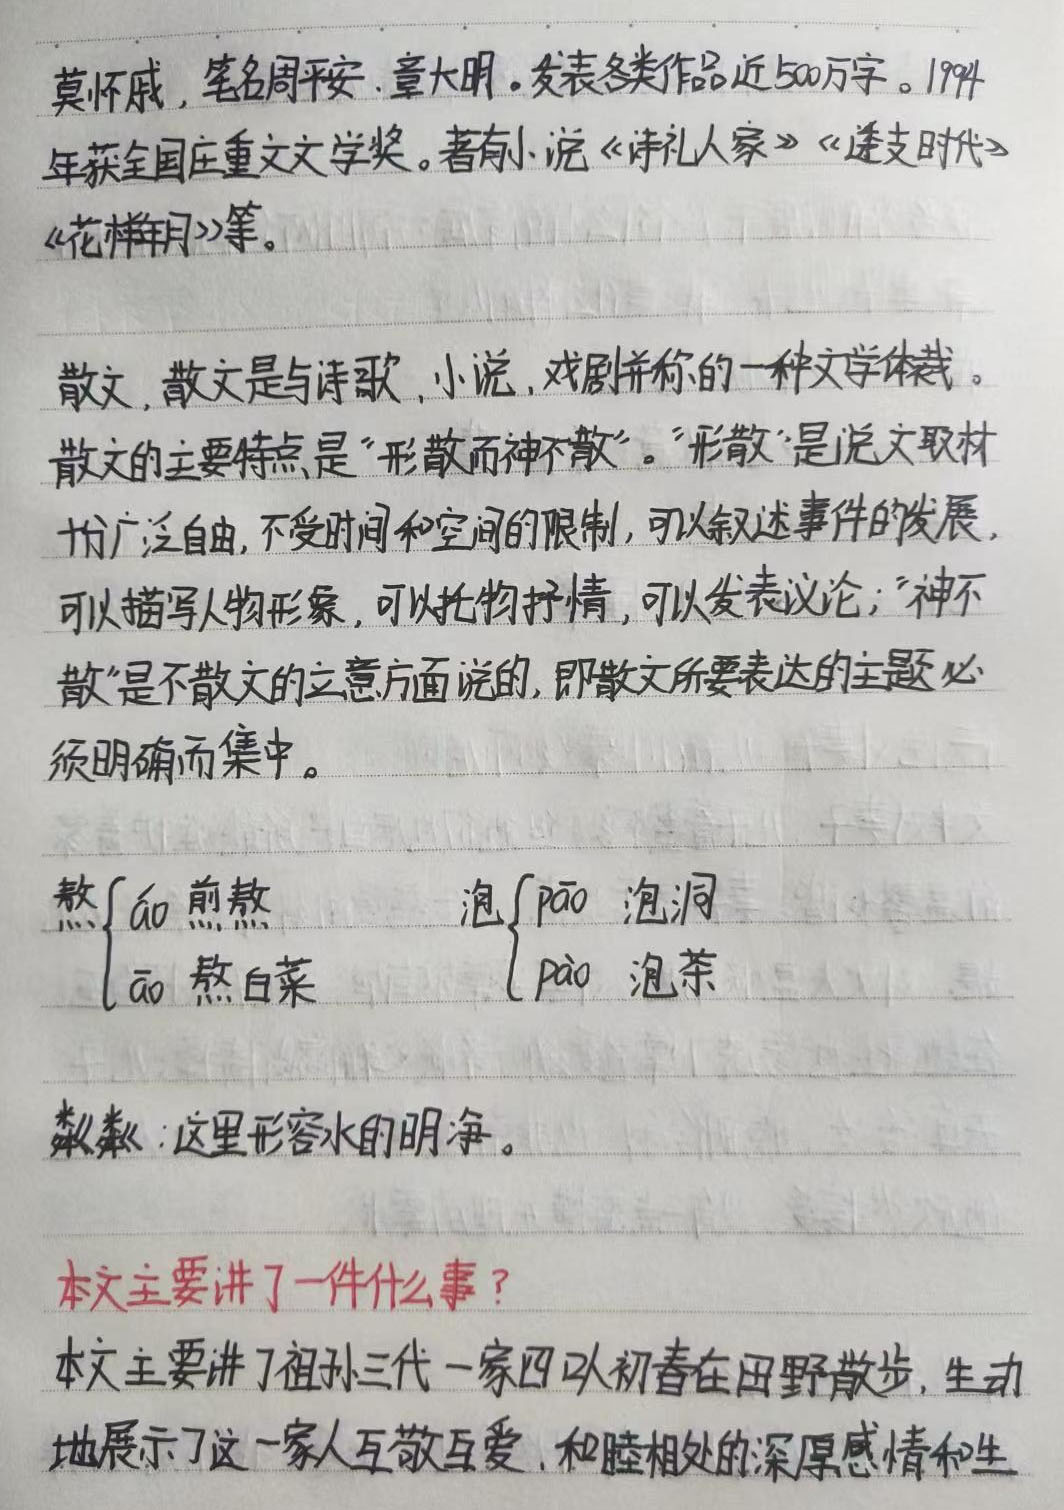 莫怀戚，笔名周平安、章大明。发表各类作品近500万字。1994
年获全国庄重文文学奖。著有小说《诗礼人家》《透支时代》
《花样年月》等。
散文，散文是与诗歌，小说，戏剧并称的一种文学体裁。
散文的主要特点是“形散而神不散”。“形散”是说文取材
十分广泛自由，不受时间和空间的限制，可以叙述事件的发展，
可以描写人物形象，可以托物抒情，可以发表议论；“神不
散”是不散文的立意方面说的，即散文所要表达的主题必
须明确而集中。
熬{áo 煎熬 泡{pāo 泡洞
āo 熬白菜 pào 泡茶
粼粼：这里形容水的明净。
本文主要讲了一件什么事？
本文主要讲了祖孙三代一家四口从初春在田野散步，生动
地展示了这一家人互敬互爱，和睦相处的深厚感情和生